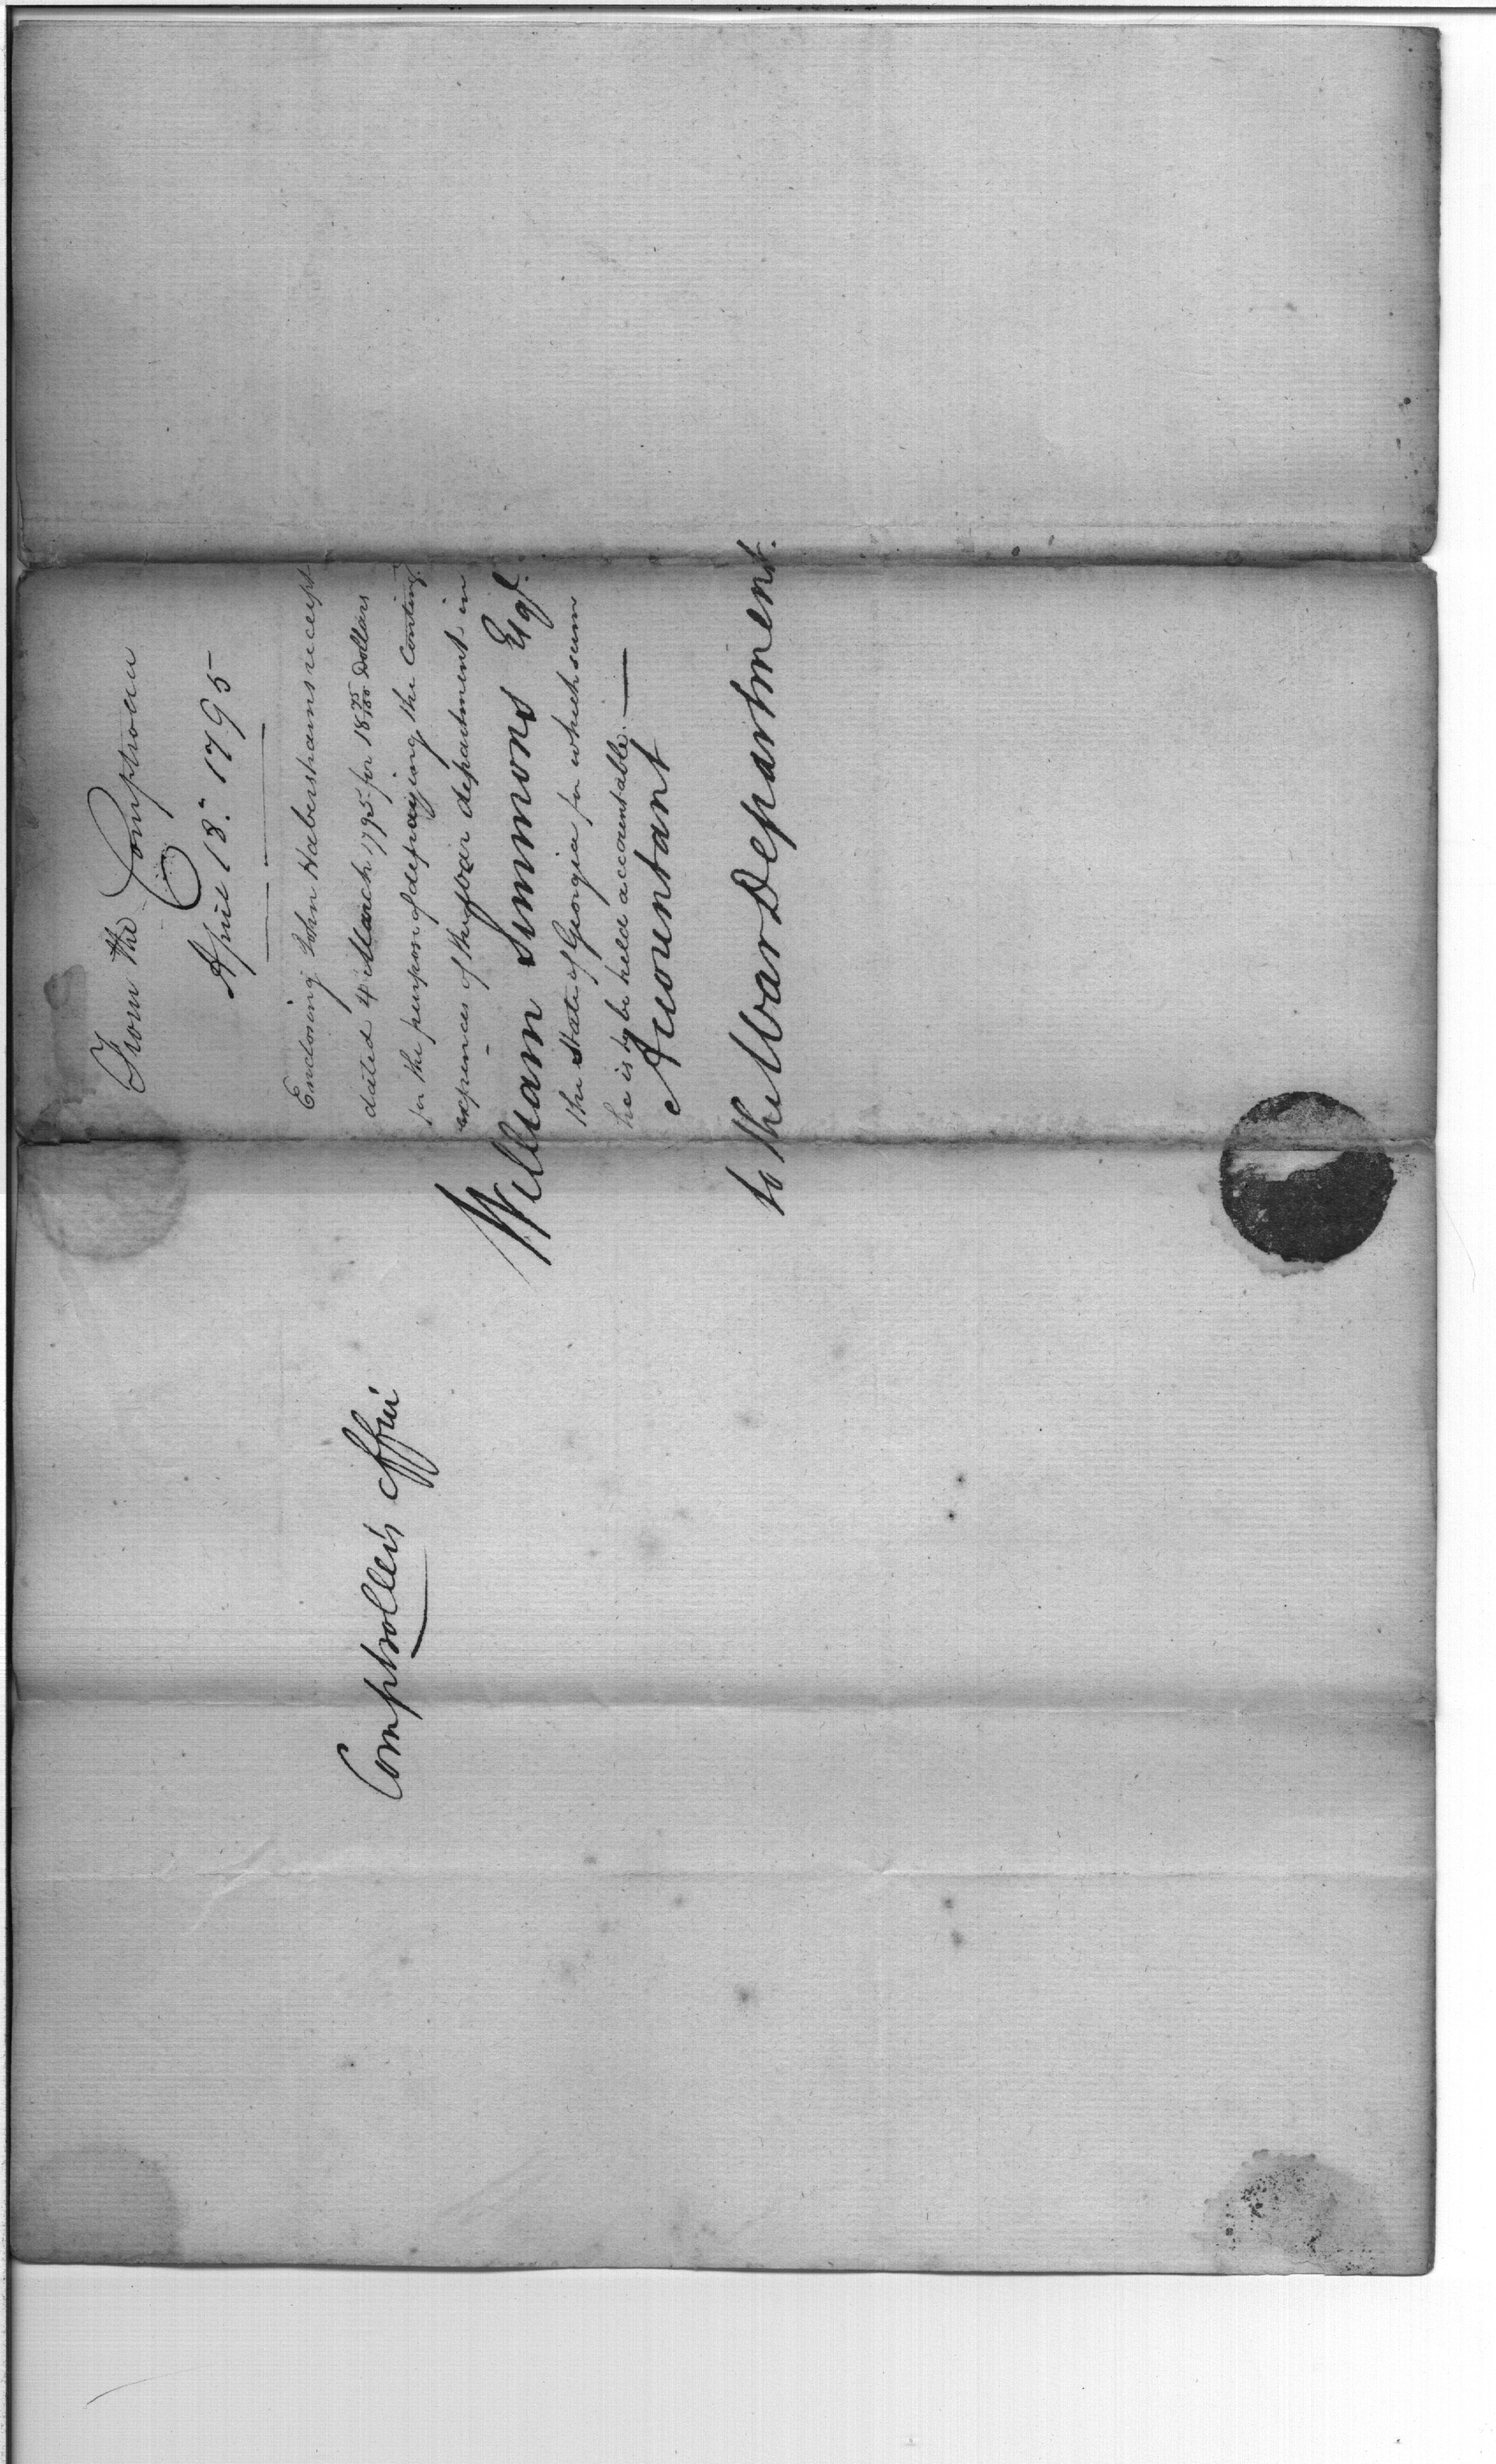 From the Comptroller
April 18.th 1795
Enclosing John Habershams receipt
dated 4 March 1795 for 18 75/100 Dollars
for the purpose of defraying the Conting.t
expences of the War department in
the State of Georgia for which sum
he is to be held accountable.
Comptroller's Office
William Simmons Esqr.
Accountant
to the War Department.